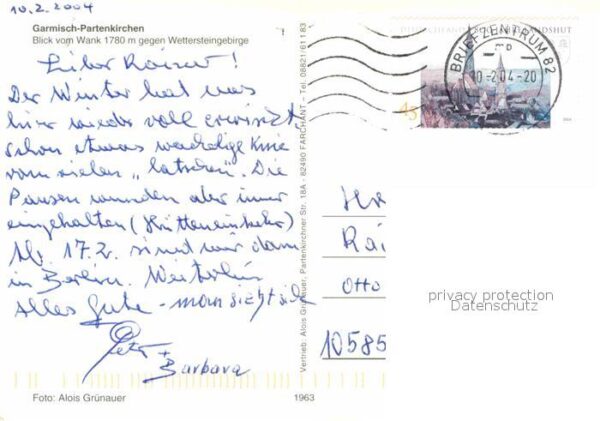 10.2.2004
Garmisch-Partenkirchen
Blick vom Wank 1780 m gegen Wettersteingebirge
Lieber Rainer!
Der Winter hat uns
hier wieder voll erwischt,
schon etwas wackelige Knie
vom vielen „latschen". Die
Pausen wurden aber immer
eingehalten (Hütteneinkehr)
Ab 17.2. sind wir dann
in Berlin. Weiterhin
Alles Gute - man sieht sich
Peter +
Barbara
Foto: Alois Grünauer
1963
Vertrieb: Alois Grünauer, Partenkirchner Str. 18A - 82490 FARCHANT - Tel. 08821/61183
BRIEFZENTRUM 82
-2.04-20
45
Rai
Otto
10585
privacy protection
Datenschutz